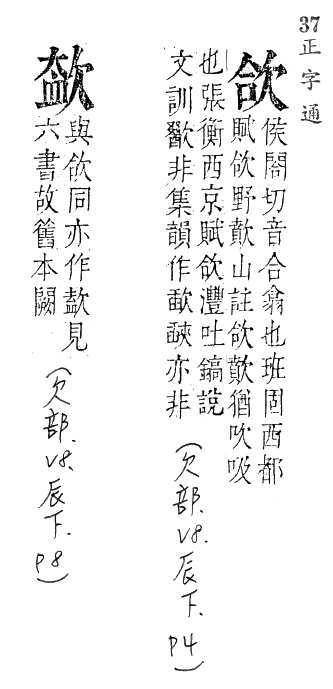 37正字通
欱
侯閤切音合翕也班固西都
賦欱野歕山註欱歕猶吹吸
也張衡西京賦欱灃吐鎬說
文訓歠非集韻作㱃𣤲亦非
(欠部.V8.辰下.P4)
㰵
與欱同亦作㰵見
六書故舊本闕
(欠部.V8.辰下.P8)